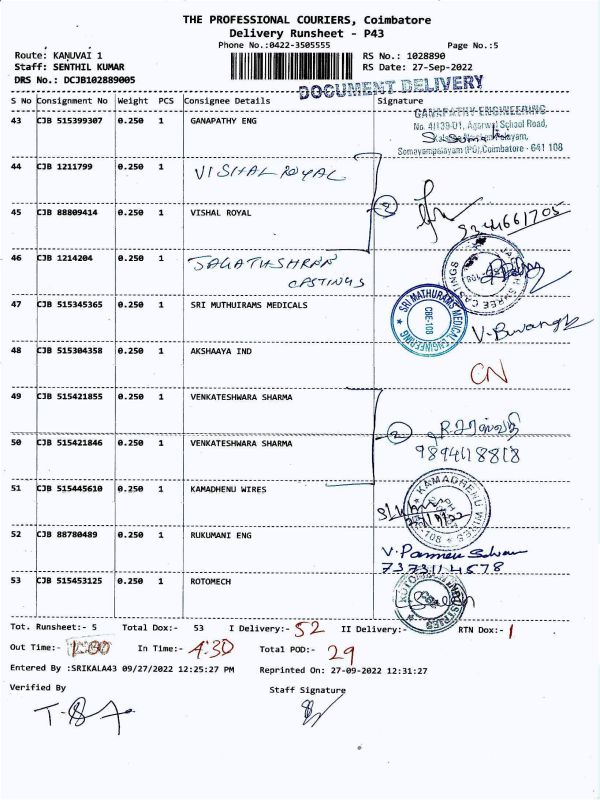 THE PROFESSIONAL COURIERS, Coimbatore
Delivery Runsheet - P43
Phone No.:0422-3505555
Page No.:5
Route: KANUVAI 1
RS No.: 1028890
Staff: SENTHIL KUMAR
RS Date: 27-Sep-2022
DRS No.: DCJB102889005
DOCUMENT DELIVERY
S No Consignment No Weight PCS Consignee Details Signature
43 CJB 515399307 0.250 1 GANAPATHY ENG
GANAPATHY ENGINEERING
No. 4/139-D1, Agarwal School Road,
Somayampalayam (PO), Coimbatore - 641 108
44 CJB 1211799 0.250 1 VISHAL ROYAL
45 CJB 88809414 0.250 1 VISHAL ROYAL
2
9344661705
46 CJB 1214204 0.250 1 JAGATHSHREE
CASTINGS
47 CJB 515345365 0.250 1 SRI MUTHUIRAMS MEDICALS
SRI MATHURAMS MEDICAL ENGINEERING
CBE-108
48 CJB 515304358 0.250 1 AKSHAAYA IND
CN
49 CJB 515421855 0.250 1 VENKATESHWARA SHARMA
50 CJB 515421846 0.250 1 VENKATESHWARA SHARMA
2
9894118818
51 CJB 515445610 0.250 1 KAMADHENU WIRES
KAMADHENU WIRES
52 CJB 88780489 0.250 1 RUKUMANI ENG
7373114578
53 CJB 515453125 0.250 1 ROTOMECH
ROTOMECH INDUSTRIES
Tot. Runsheet:- 5 Total Dox:- 53 I Delivery:- 52 II Delivery:- RTN Dox:- 1
Out Time:- 1:00 In Time:- 4:30 Total POD:- 29
Entered By :SRIKALA43 09/27/2022 12:25:27 PM Reprinted On: 27-09-2022 12:31:27
Verified By
Staff Signature